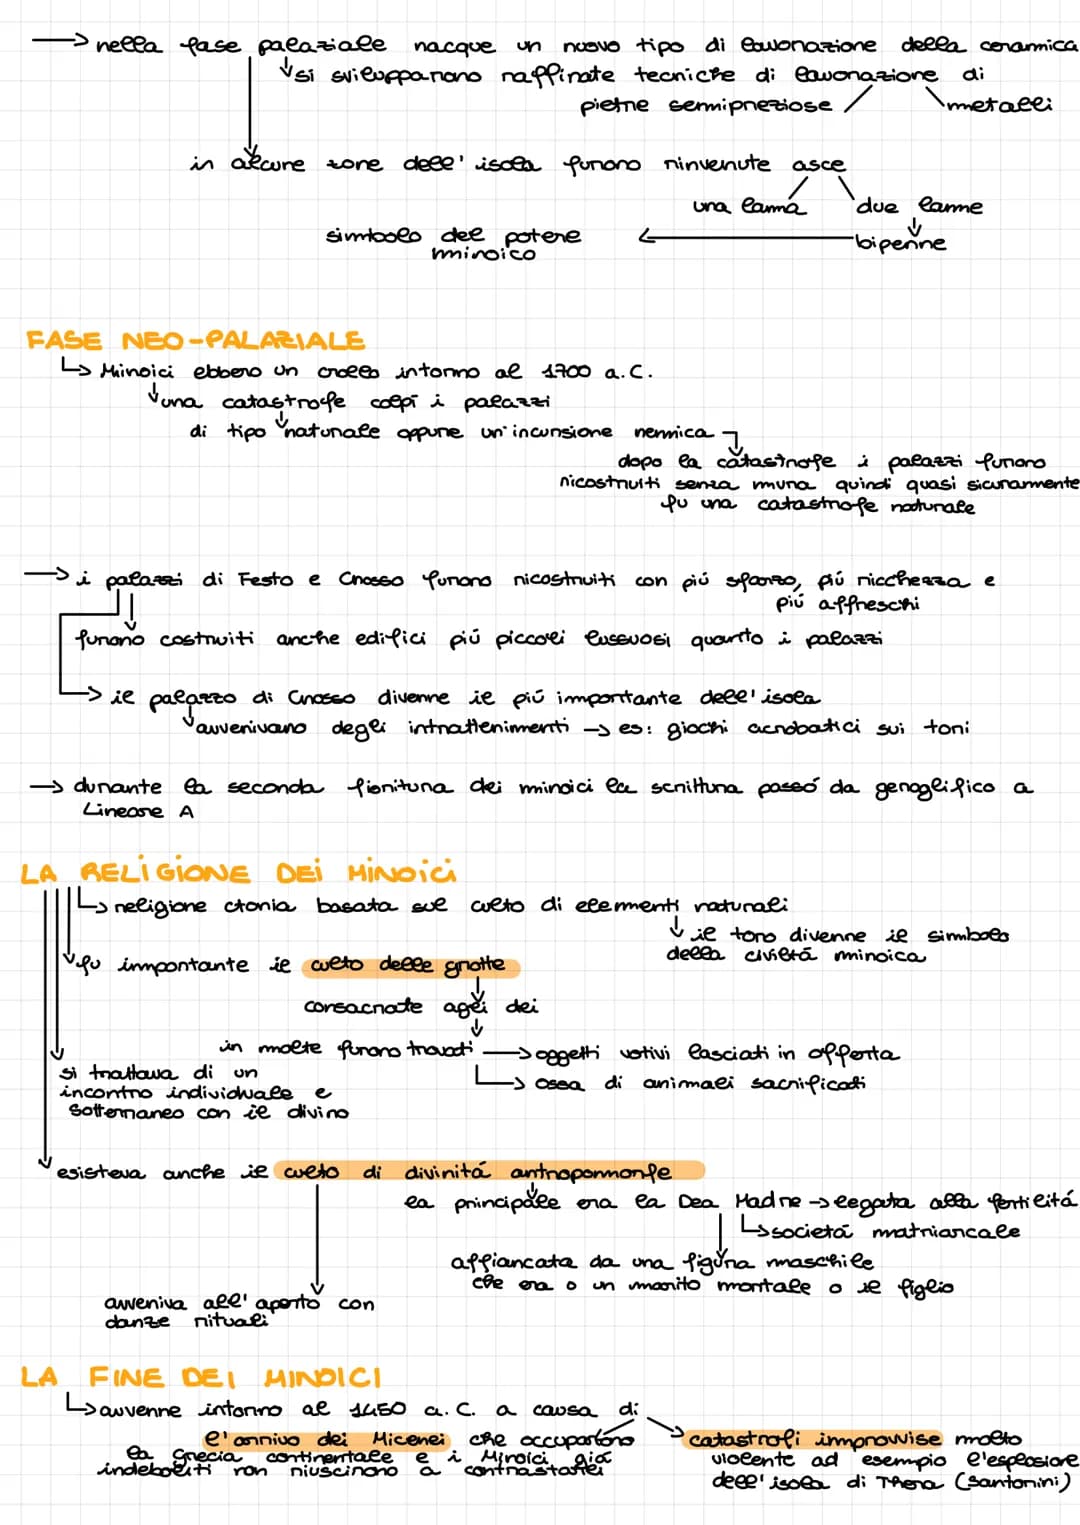 → nella fase palaziale nacque un nuovo tipo di lavorazione della ceramica
↓ si svilupparono raffinate tecniche di lavorazione di
pietre semipreziose metalli
in alcune zone dell'isola furono rinvenute asce
una lama due lame
simbolo del potere ← bipenne
minoico
FASE NEO-PALAZIALE
↳ Minoici ebbero un crollo intorno al 1700 a.C.
↓ una catastrofe colpì i palazzi
di tipo naturale oppure un'incursione nemica
dopo la catastrofe i palazzi furono
ricostruiti senza mura quindi quasi sicuramente
fu una catastrofe naturale
→ i palazzi di Festo e Cnosso furono ricostruiti con più sfarzo, più ricchezza e
più affreschi
furono costruiti anche edifici più piccoli lussuosi quanto i palazzi
→ il palazzo di Cnosso divenne il più importante dell'isola
↓ avvenivano degli intrattenimenti → es: giochi acrobatici sui tori
→ durante la seconda fioritura dei minoici la scrittura passó da geroglifico a
Lineare A
LA RELIGIONE DEI MINOICI
↳ religione ctonia basata sul culto di elementi naturali
↓ il toro divenne il simbolo
della civiltá minoica
fu importante il culto delle grotte
consacrate agli dei
in molte furono trovati → oggetti votivi lasciati in offerta
si trattava di un ↳ ossa di animali sacrificati
incontro individuale e
sotterraneo con il divino
esisteva anche il culto di divinitá antropomorfe
la principale era la Dea Madre → legata alla fertilitá
↳ societá matriarcale
affiancata da una figura maschile
che era o un marito mortale o il figlio
avveniva all'aperto con
danze rituali
LA FINE DEI MINOICI
↳ avvenne intorno al 1450 a.C. a causa di:
l'arrivo dei Micenei che occuparono catastrofi improvvise molto
la Grecia continentale e i Minoici giá violente ad esempio l'esplosione
indeboliti non riuscirono a contrastarli dell'isola di Thera (Santorini)